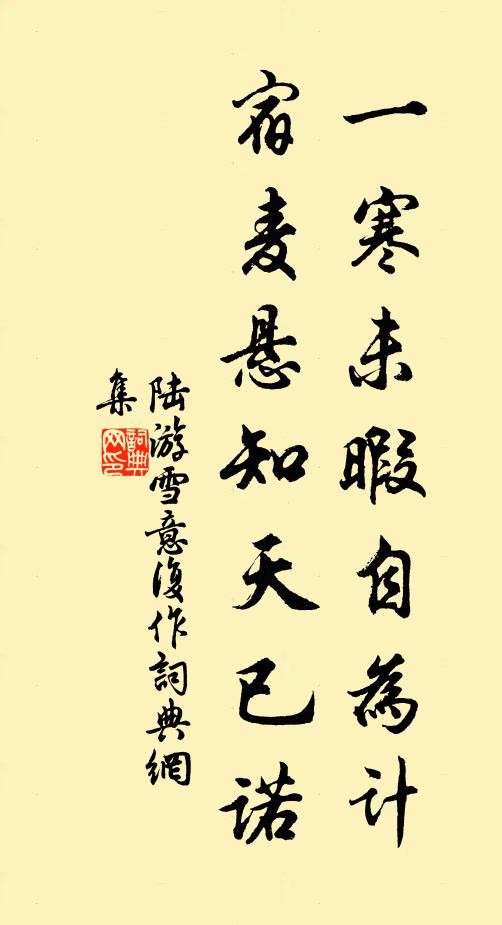 一寒未暇自為計
宿麦悬知天已诺
陆游雪意復作詞典網
集
詞典网印